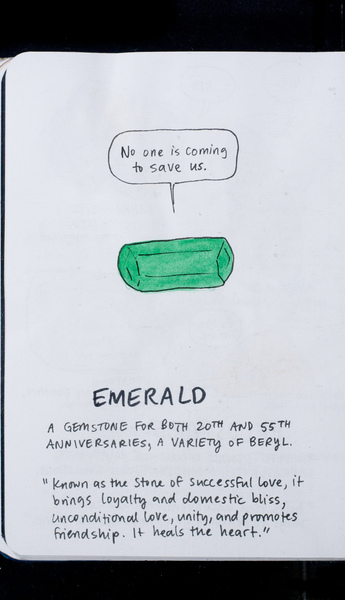 No one is coming
to save us.
EMERALD
A GEMSTONE FOR BOTH 20TH AND 55TH
ANNIVERSARIES, A VARIETY OF BERYL.
"Known as the stone of successful love, it
brings loyalty and domestic bliss,
unconditional love, unity, and promotes
friendship. It heals the heart."